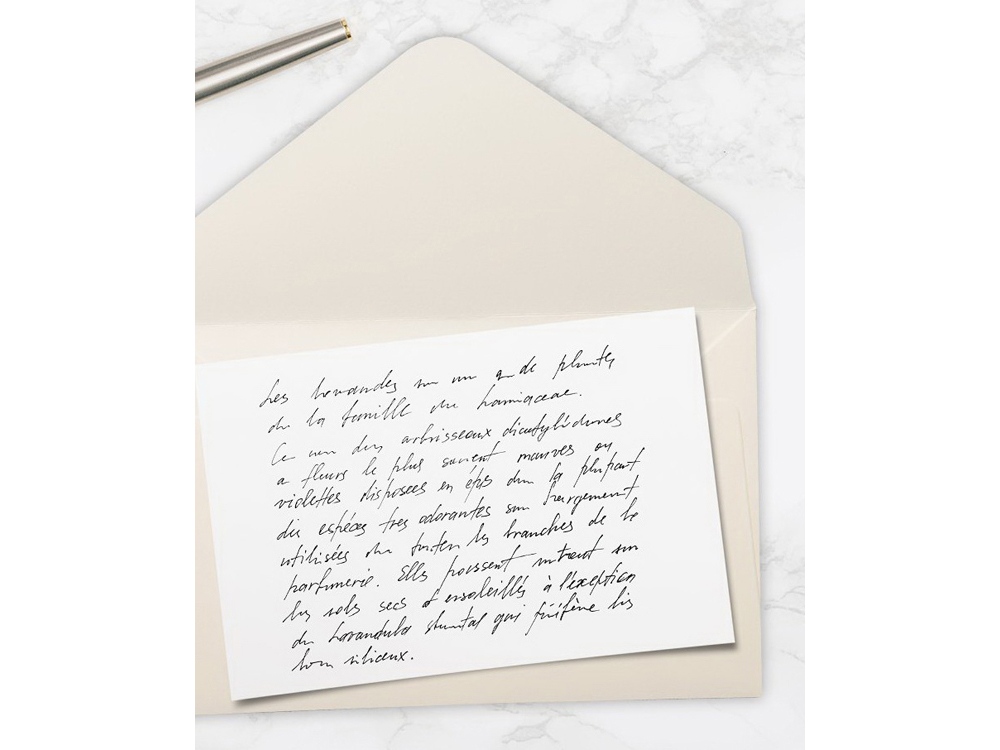 Les lavandes sur un de plantes
de la famille du Lamiaceae.
Ce un des arbrisseaux dicotylédones
a fleurs le plus souvent mauves ou
violettes disposées en épis dans la plupart
des espéces tres odorantes sur largement
utilisées du toutes les branches de la
parfumerie. Elles poussent surtout sur
les sols secs et ensoleillés à l'exception
du Lavandula qui préfére les
siliceux.